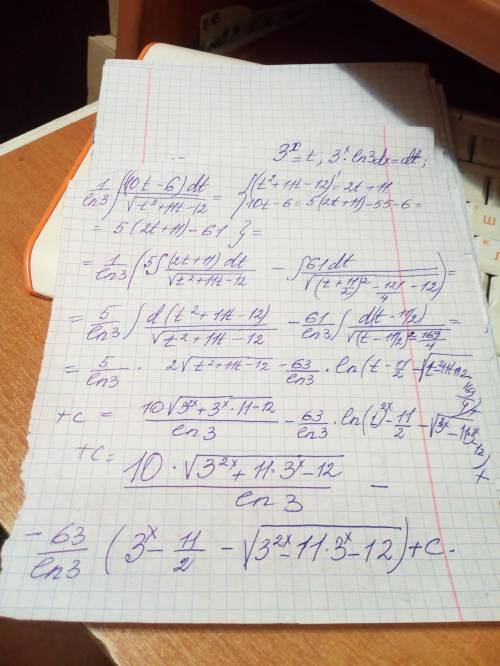 3^x = t; 3^x · ln3dx = dt;
1/ln3 ∫ (10t-6)dt/√(t²+11t-12) = {(t²+11t-12)' = 2t+11
10t-6 = 5(2t+11)-55-6 =
= 5(2t+11)-61} =
= 1/ln3 (5∫ (2t+11)dt/√(t²+11t-12) - ∫ 61dt/√((t+11/2)² - 121/4 - 12) ) =
= 5/ln3 ∫ d(t²+11t-12)/√(t²+11t-12) - 61/ln3 ∫ d(t-11/2)/√((t-11/2)² - 169/4) =
= 5/ln3 · 2√(t²+11t-12) - 63/ln3 · ln(t-11/2 -
+c = 10√(3^2x+3^x·11-12)/ln3 - 63/ln3 · ln( - 11/2 - √
+c = 10·√(3^2x+11·3^x-12)/ln3 -
- 63/ln3 (3^x - 11/2 - √(3^2x-11·3^x-12)) + c.